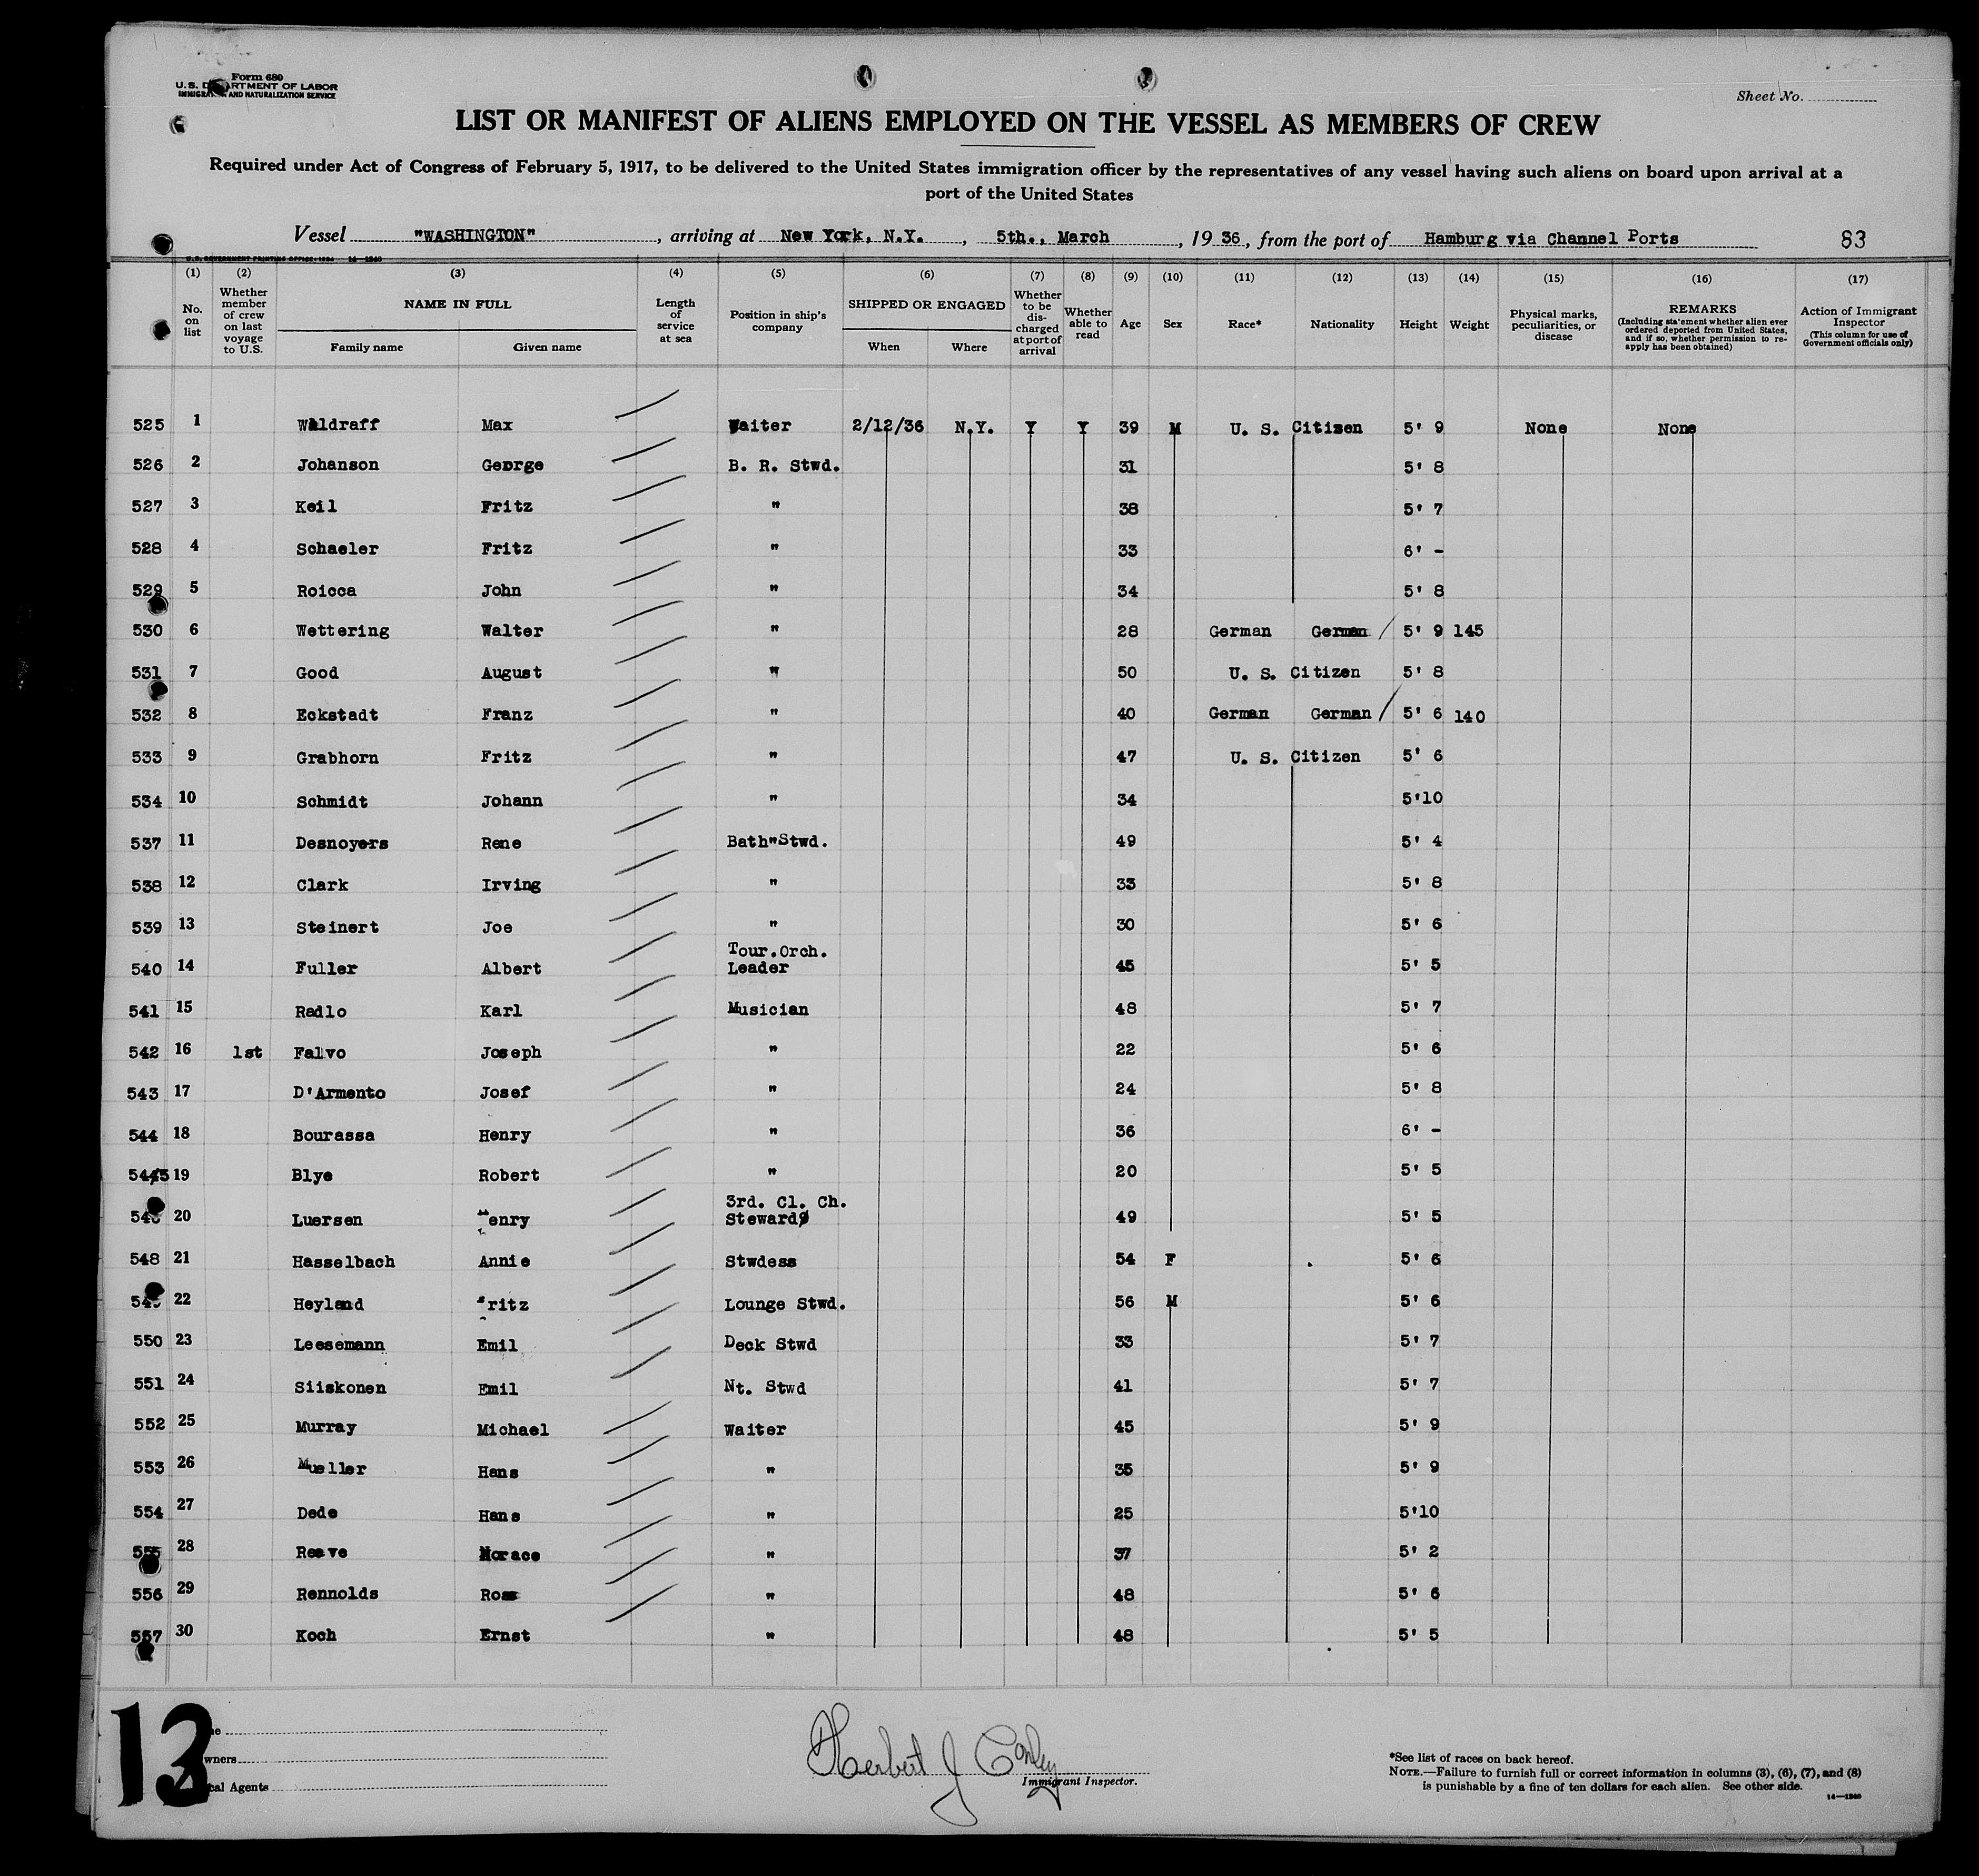 Form 680
U.S. DEPARTMENT OF LABOR
IMMIGRATION AND NATURALIZATION SERVICE
Sheet No.
LIST OR MANIFEST OF ALIENS EMPLOYED ON THE VESSEL AS MEMBERS OF CREW
Required under Act of Congress of February 5, 1917, to be delivered to the United States immigration officer by the representatives of any vessel having such aliens on board upon arrival at a
port of the United States
Vessel "WASHINGTON", arriving at New York, N.Y., 5th., March, 1936, from the port of Hamburg via Channel Ports 83
U.S. GOVERNMENT PRINTING OFFICE: 1934 14-1240
(1) (2) (3) (4) (5) (6) (7) (8) (9) (10) (11) (12) (13) (14) (15) (16) (17)
No. on list
Whether member of crew on last voyage to U.S.
NAME IN FULL
Family name Given name
Length of service at sea
Position in ship's company
SHIPPED OR ENGAGED
When Where
Whether to be discharged at port of arrival
Whether able to read
Age
Sex
Race*
Nationality
Height
Weight
Physical marks, peculiarities, or disease
REMARKS
(Including statement whether alien ever ordered deported from United States, and if so, whether permission to reapply has been obtained)
Action of Immigrant Inspector
(This column for use of Government officials only)
525 1 Waldraff Max Waiter 2/12/36 N.Y. Y Y 39 M U. S. Citizen 5' 9 None None
526 2 Johanson George B. R. Stwd. 31 5' 8
527 3 Keil Fritz " 38 5' 7
528 4 Schaeler Fritz " 33 6' -
529 5 Roicca John " 34 5' 8
530 6 Wettering Walter " 28 German German 5' 9 145
531 7 Good August " 50 U. S. Citizen 5' 8
532 8 Eckstadt Franz " 40 German German 5' 6 140
533 9 Grabhorn Fritz " 47 U. S. Citizen 5' 6
534 10 Schmidt Johann " 34 5'10
537 11 Desnoyers Rene Bath"Stwd. 49 5' 4
538 12 Clark Irving " 33 5' 8
539 13 Steinert Joe " 30 5' 6
540 14 Fuller Albert Tour.Orch. Leader 45 5' 5
541 15 Radlo Karl Musician 48 5' 7
542 16 1st Falvo Joseph " 22 5' 6
543 17 D'Armento Josef " 24 5' 8
544 18 Bourassa Henry " 36 6' -
545 19 Blye Robert " 20 5' 5
20 Luersen Henry 3rd. Cl. Ch. Steward 49 5' 5
548 21 Hasselbach Annie Stwdess 54 F 5' 6
22 Heyland Fritz Lounge Stwd. 56 M 5' 6
550 23 Leesemann Emil Deck Stwd 33 5' 7
551 24 Siiskonen Emil Nt. Stwd 41 5' 7
552 25 Murray Michael Waiter 45 5' 9
553 26 Mueller Hans " 35 5' 9
554 27 Dede Hans " 25 5'10
555 28 Reeve Horace " 37 5' 2
556 29 Rennolds Ross " 48 5' 6
557 30 Koch Ernst " 48 5' 5
13
Owners
Local Agents
Herbert J Conley
Immigrant Inspector.
*See list of races on back hereof.
NOTE.—Failure to furnish full or correct information in columns (3), (6), (7), and (8)
is punishable by a fine of ten dollars for each alien. See other side.
14—1240